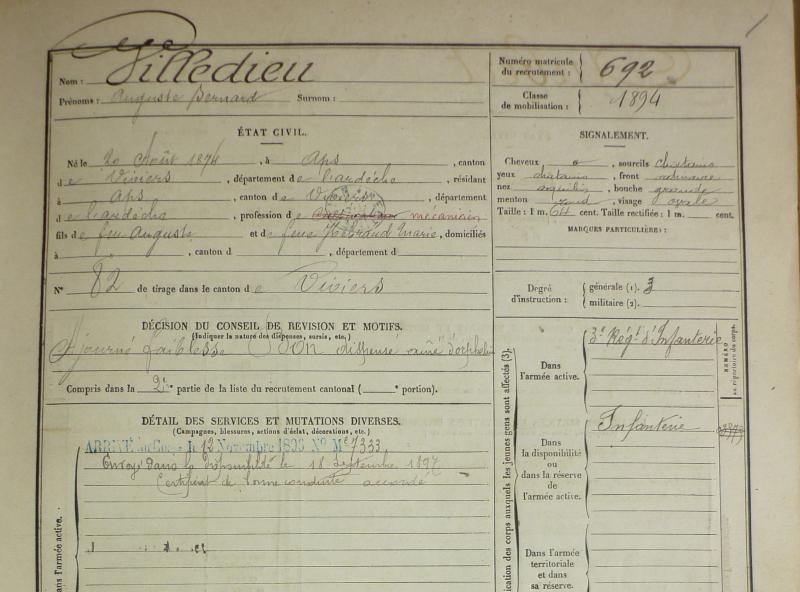 Nom: Villedieu
Prénoms: Auguste Bernard Surnom:
Numéro matricule du recrutement: 692
Classe de mobilisation: 1894
ÉTAT CIVIL.
Né le 20 Août 1874, à Aps, canton
de Viviers, département de l'ardèche, résidant
à Aps, canton de Viviers, département
de l'ardèche, profession de mécanicien
fils de feu Auguste et de feue Hébraud Marie, domiciliés
à , canton d , département d
N° 82 de tirage dans le canton de Viviers
SIGNALEMENT.
Cheveux , sourcils chatains
yeux chatains, front ordinaire
nez aquilin, bouche grande
menton rond, visage ovale
Taille: 1 m. 64 cent. Taille rectifiée: 1 m. cent.
MARQUES PARTICULIÈRES:
Degré d'instruction: générale (1). 3
militaire (2).
DÉCISION DU CONSEIL DE REVISION ET MOTIFS.
(Indiquer la nature des dispenses, sursis, etc.)
Ajourné faiblesse Bon dispensé ainé d'orphelin
Compris dans la 2e partie de la liste du recrutement cantonal ( e portion).
DÉTAIL DES SERVICES ET MUTATIONS DIVERSES.
(Campagnes, blessures, actions d'éclat, décorations, etc.)
ARRIVÉ au Corps le 13 Novembre 1896 N° Mle 7333
Envoyé dans la disponibilité le 18 Septembre 1897
Certificat de bonne conduite accordé
ans l'armée active.
ication des corps auxquels les jeunes gens sont affectés (3).
Dans l'armée active.
3e Régt d'Infanterie
NUMÉRO
au répertoire du corps.
Dans la disponibilité ou dans la réserve de l'armée active.
Infanterie
Dans l'armée territoriale et dans sa réserve.